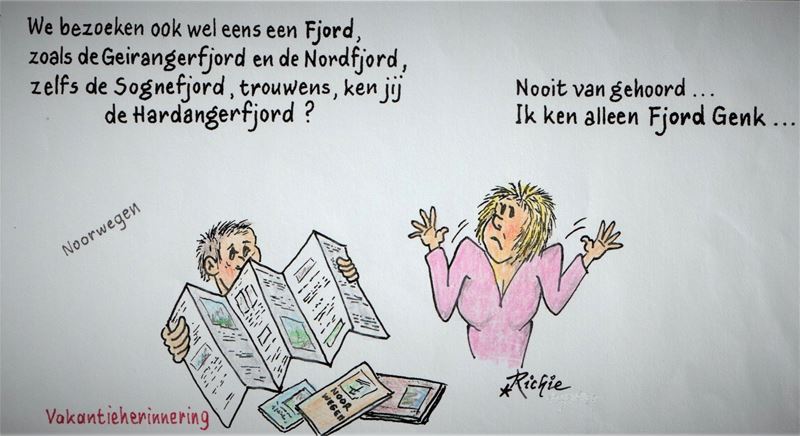 We bezoeken ook wel eens een Fjord,
zoals de Geirangerfjord en de Nordfjord,
zelfs de Sognefjord, trouwens, ken jij
de Hardangerfjord ?
Nooit van gehoord ...
Ik ken alleen Fjord Genk ...
Noorwegen
NOOR
WEGEN
Richie
Vakantieherinnering